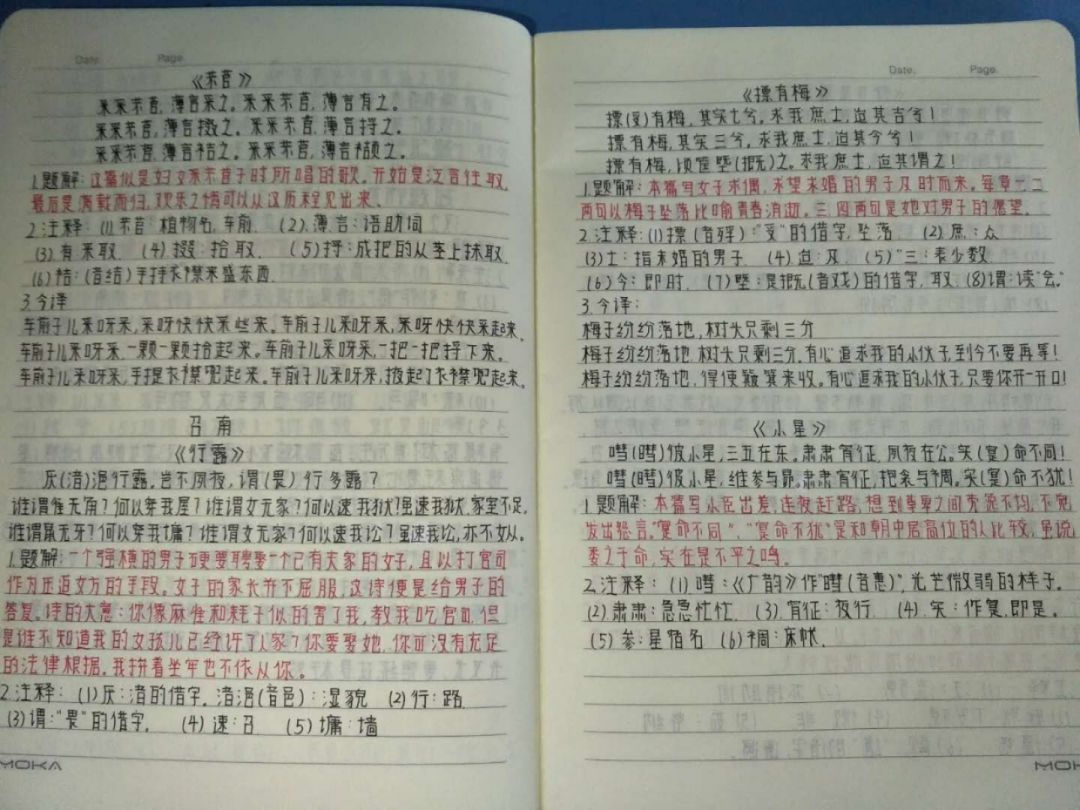 Date. Page.
《芣苢》
采采芣苢，薄言采之。采采芣苢，薄言有之。
采采芣苢，薄言掇之。采采芣苢，薄言捋之。
采采芣苢，薄言袺之。采采芣苢，薄言襭之。
1.题解：这篇似是妇女采芣苢子时所唱的歌。开始是泛言往取，
最后是满载而归，欢乐之情可以从这历程见出来。
2.注释：(1).芣苢：植物名，车前. (2).薄言：语助词
(3).有：采取. (4).掇：拾取. (5).捋：成把的从茎上抹取.
(6).袺：(音结)手持衣襟来盛东西.
3.今译
车前子儿采呀采，采呀快快采些来。车前子儿采呀采，采呀快快采起来.
车前子儿采呀采，一颗一颗拾起来。车前子儿采呀采，一把一把捋下来。
车前子儿采呀采，手提衣襟兜起来。车前子儿采呀采，掖起了衣襟兜起来。
召南
《行露》
厌(湆)浥行露，岂不夙夜，谓(畏)行多露？
谁谓雀无角？何以穿我屋？谁谓女无家？何以速我狱？虽速我狱，家室不足。
谁谓鼠无牙？何以穿我墉？谁谓女无家？何以速我讼？虽速我讼，亦不女从。
1.题解：一个强横的男子硬要聘娶一个已有夫家的女子，且以打官司
作为压迫女方的手段。女子的家长并不屈服，这诗便是给男子的
答复。诗的大意：你像麻雀和耗子似的害了我，教我吃官司，但
是谁不知道我的女孩儿已经许了人家？你要娶她，你可没有充足
的法律根据。我拼着坐牢也不依从你。
2.注释：(1)厌：湆的借字。湆浥(音邑)：湿貌 (2)行：路
(3)谓："畏"的借字. (4)速：召 (5)墉：墙
MOKA
Date. Page.
《摽有梅》
摽(㪘)有梅，其实七兮。求我庶士，迨其吉兮！
摽有梅，其实三兮。求我庶士，迨其今兮！
摽有梅，顷筐塈(摡)之。求我庶士，迨其谓之！
1.题解：本篇写女子求偶，希望未婚的男子及时而来。每章一二
两句以梅子坠落比喻青春消逝。三四两句是她对男子的愿望。
2.注释：(1)摽(音殍)："㪘"的借字，坠落. (2)庶：众
(3)士：指未婚的男子. (4)迨：及. (5)"三：表少数
(6)今：即时. (7)塈：是摡(音戏)的借字，取. (8)谓：读"会".
3.今译：
梅子纷纷落地，树头只剩三分
梅子纷纷落地，树头只剩三分，有心追求我的小伙子，到今不要再等！
梅子纷纷落地，得使簸箕来收。有心追求我的小伙子，只要你开一开口！
《小星》
嘒(暳)彼小星，三五在东。肃肃宵征，夙夜在公。寔(寔)命不同！
嘒(暳)彼小星，维参与昴。肃肃宵征，抱衾与裯。寔(寔)命不犹！
1.题解：本篇写小臣出差，连夜赶路，想到尊卑之间劳逸不均，不觉
发出怨言。"寔命不同"、"寔命不犹"是和朝中居高位的人比较，虽说
委之于命，实在是不平之鸣。
2.注释：(1).嘒：《广韵》作"暳(音惠)"，光芒微弱的样子.
(2).肃肃：急急忙忙. (3).宵征：夜行. (4).实：作寔，即是。
(5)参：星宿名 (6)裯：床帐.